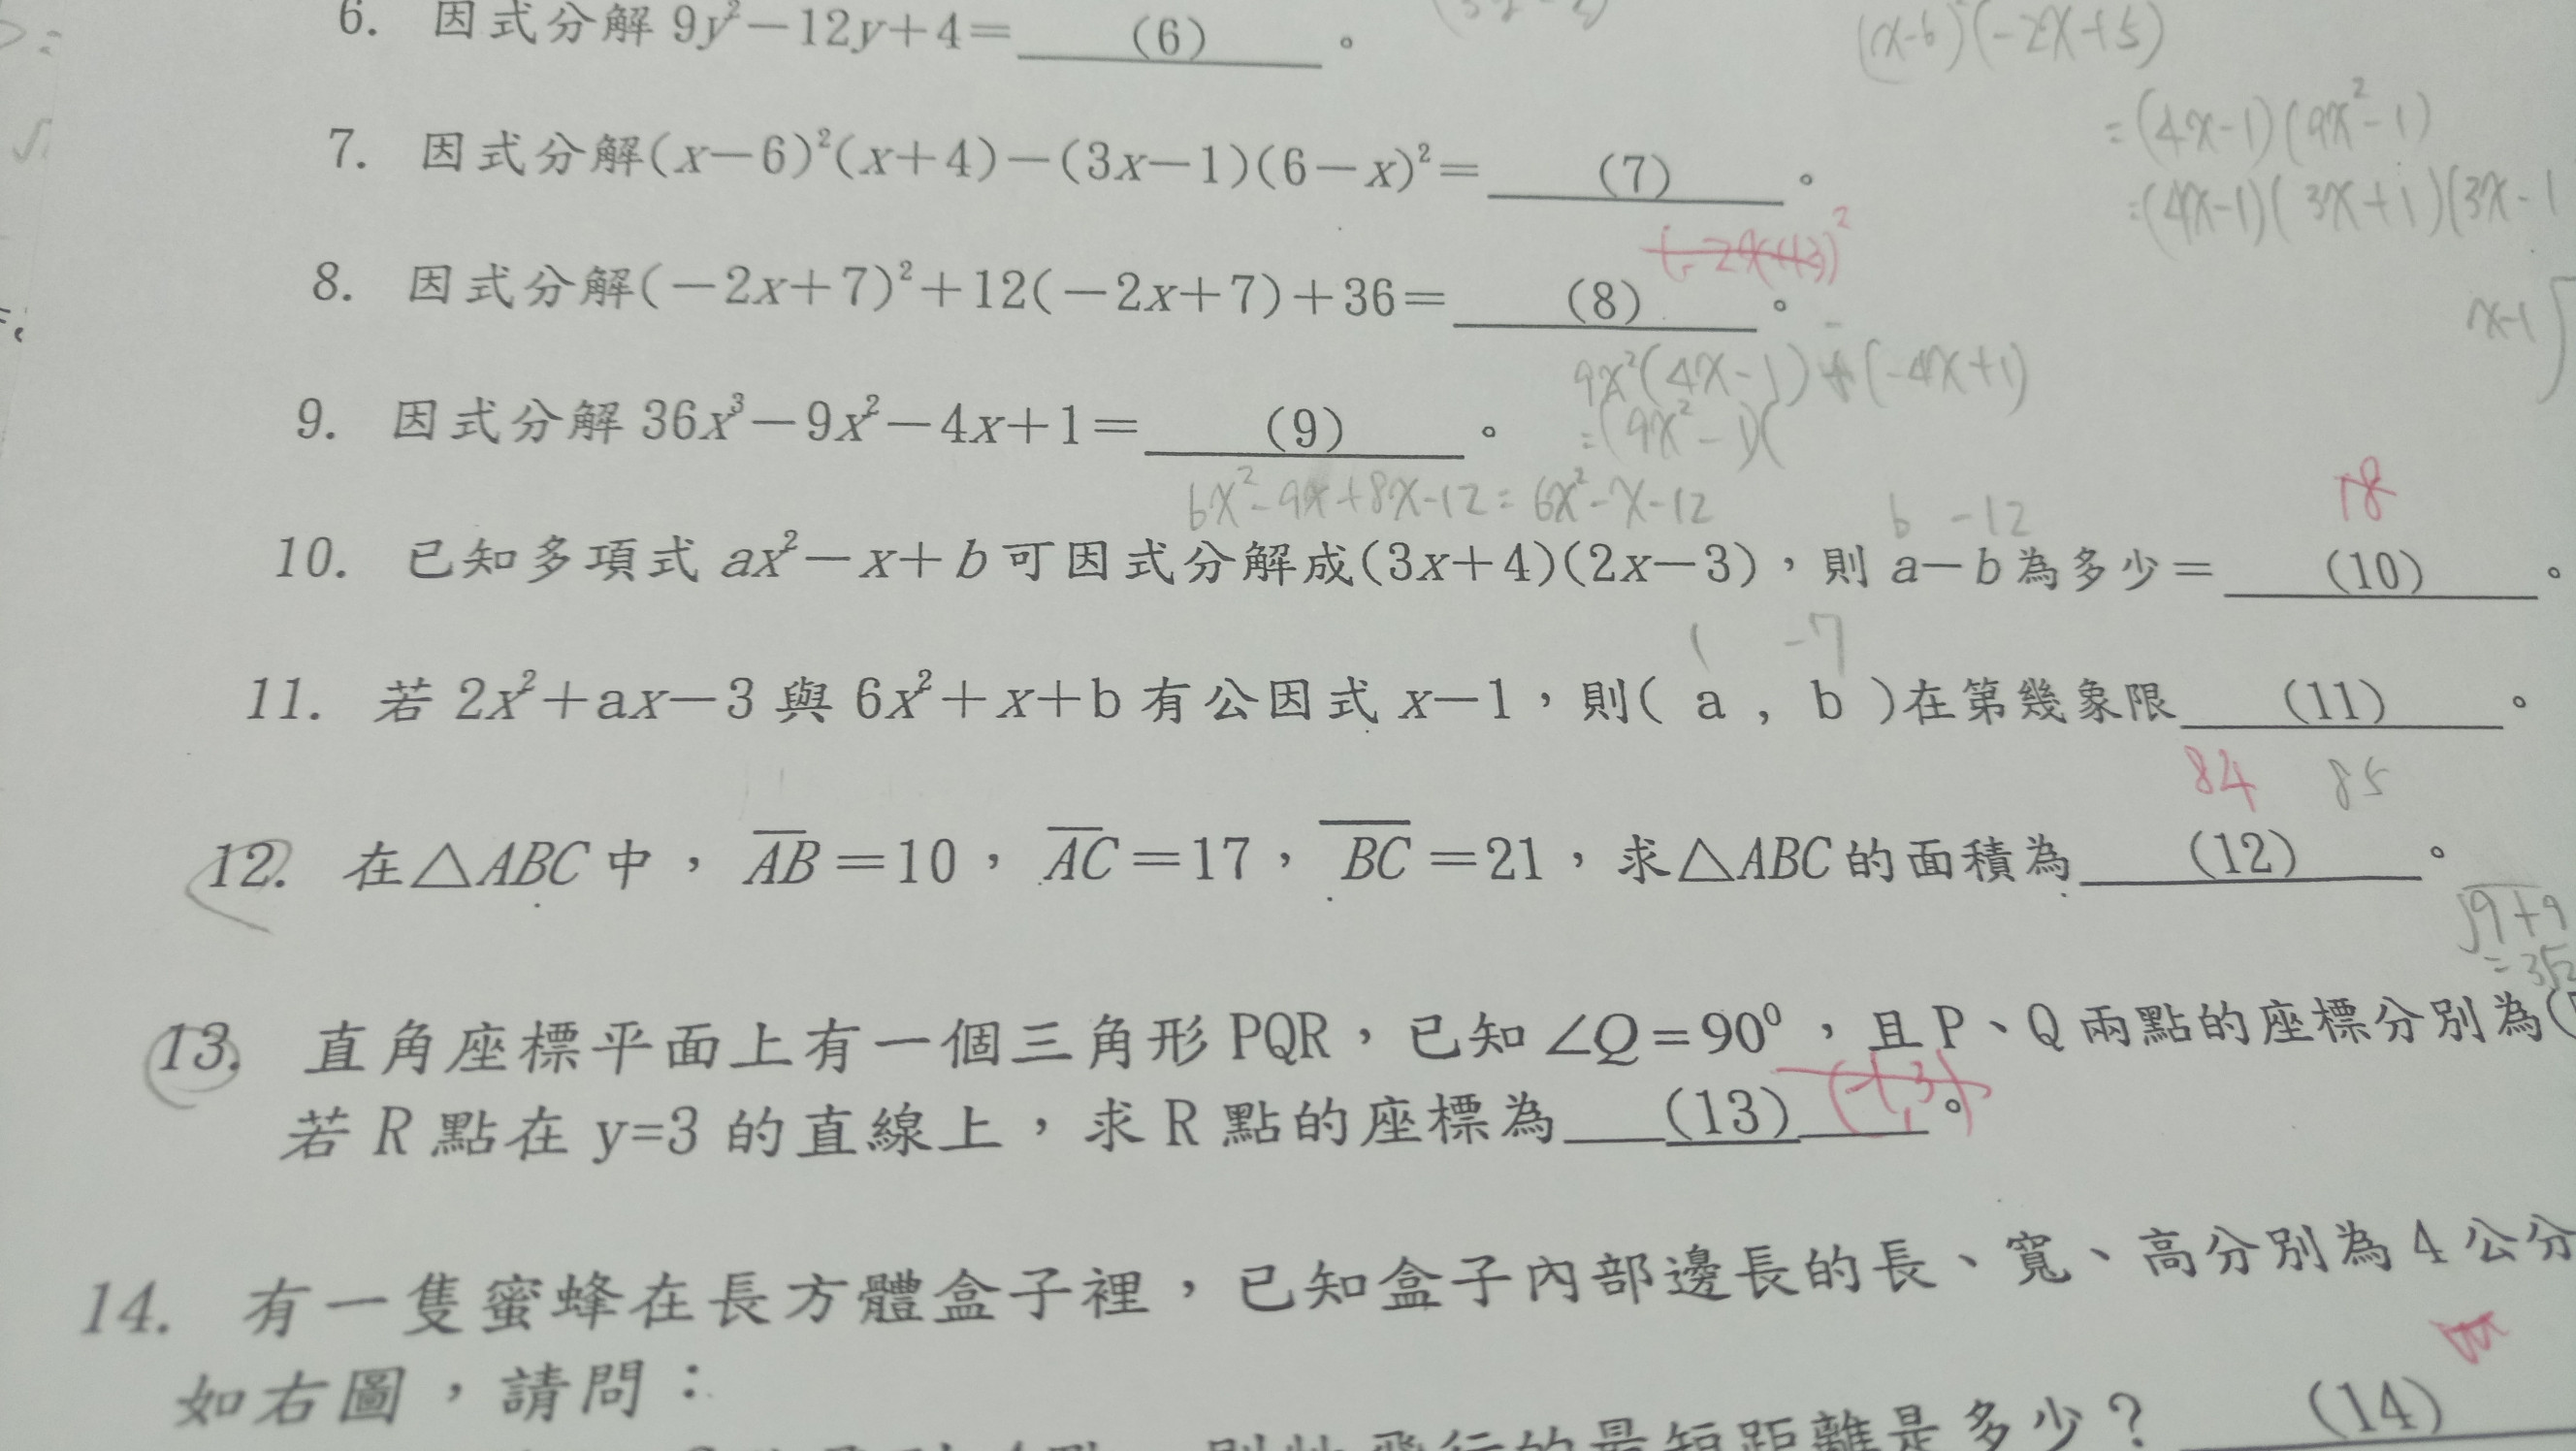 6. 因式分解 9y²－12y＋4＝ (6) 。
(x-6)²(-2x+5)
7. 因式分解(x－6)²(x＋4)－(3x－1)(6－x)²＝ (7) 。
=(4x-1)(9x²-1)
=(4x-1)(3x+1)(3x-1
8. 因式分解(－2x＋7)²＋12(－2x＋7)＋36＝ (8) 。
(-2x+13)²
x-1
9x²(4x-1)+(-4x+1)
9. 因式分解 36x³－9x²－4x＋1＝ (9) 。
=(9x²-1)(
6x²-9x+8x-12=6x²-x-12
6 -12
18
10. 已知多項式 ax²－x＋b 可因式分解成(3x＋4)(2x－3)，則 a－b 為多少＝ (10) 。
1 -7
11. 若 2x²＋ax－3 與 6x²＋x＋b 有公因式 x－1，則( a , b )在第幾象限 (11) 。
84 85
12. 在△ABC 中， AB＝10， AC＝17， BC＝21，求△ABC 的面積為 (12) 。
√9+9
=3√2
13. 直角座標平面上有一個三角形 PQR，已知∠Q＝90⁰，且 P、Q 兩點的座標分別為(
若 R 點在 y=3 的直線上，求 R 點的座標為 (13) 。
14. 有一隻蜜蜂在長方體盒子裡，已知盒子內部邊長的長、寬、高分別為 4 公分
如右圖，請問：
飛行的最短距離是多少？ (14)